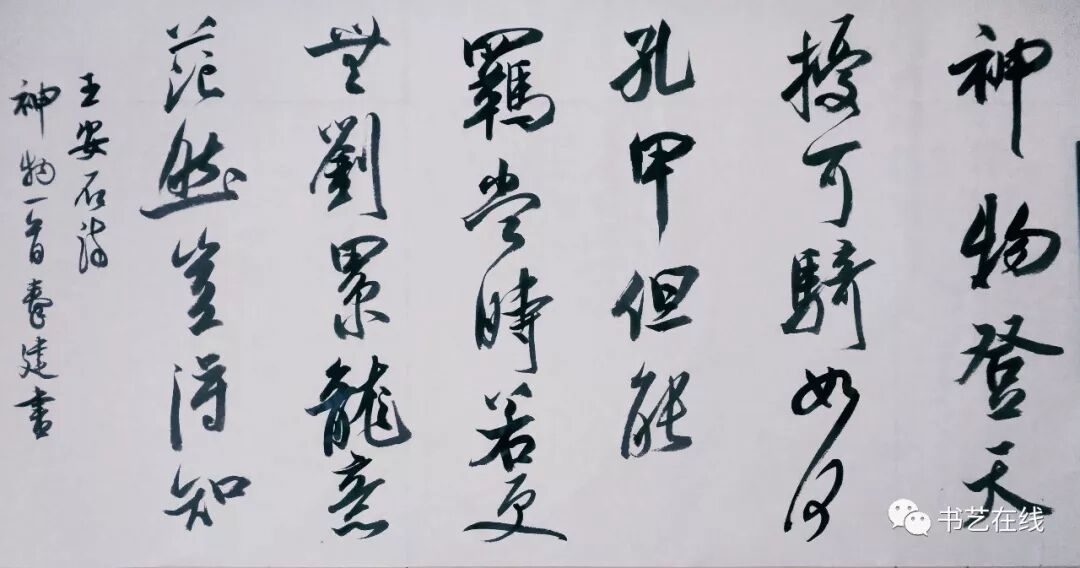 神物登天
擾可騎如何
孔甲但能
羈當時若更
無劉累龍意
茫然豈得知
王安石詩
神物一首建書
书艺在线